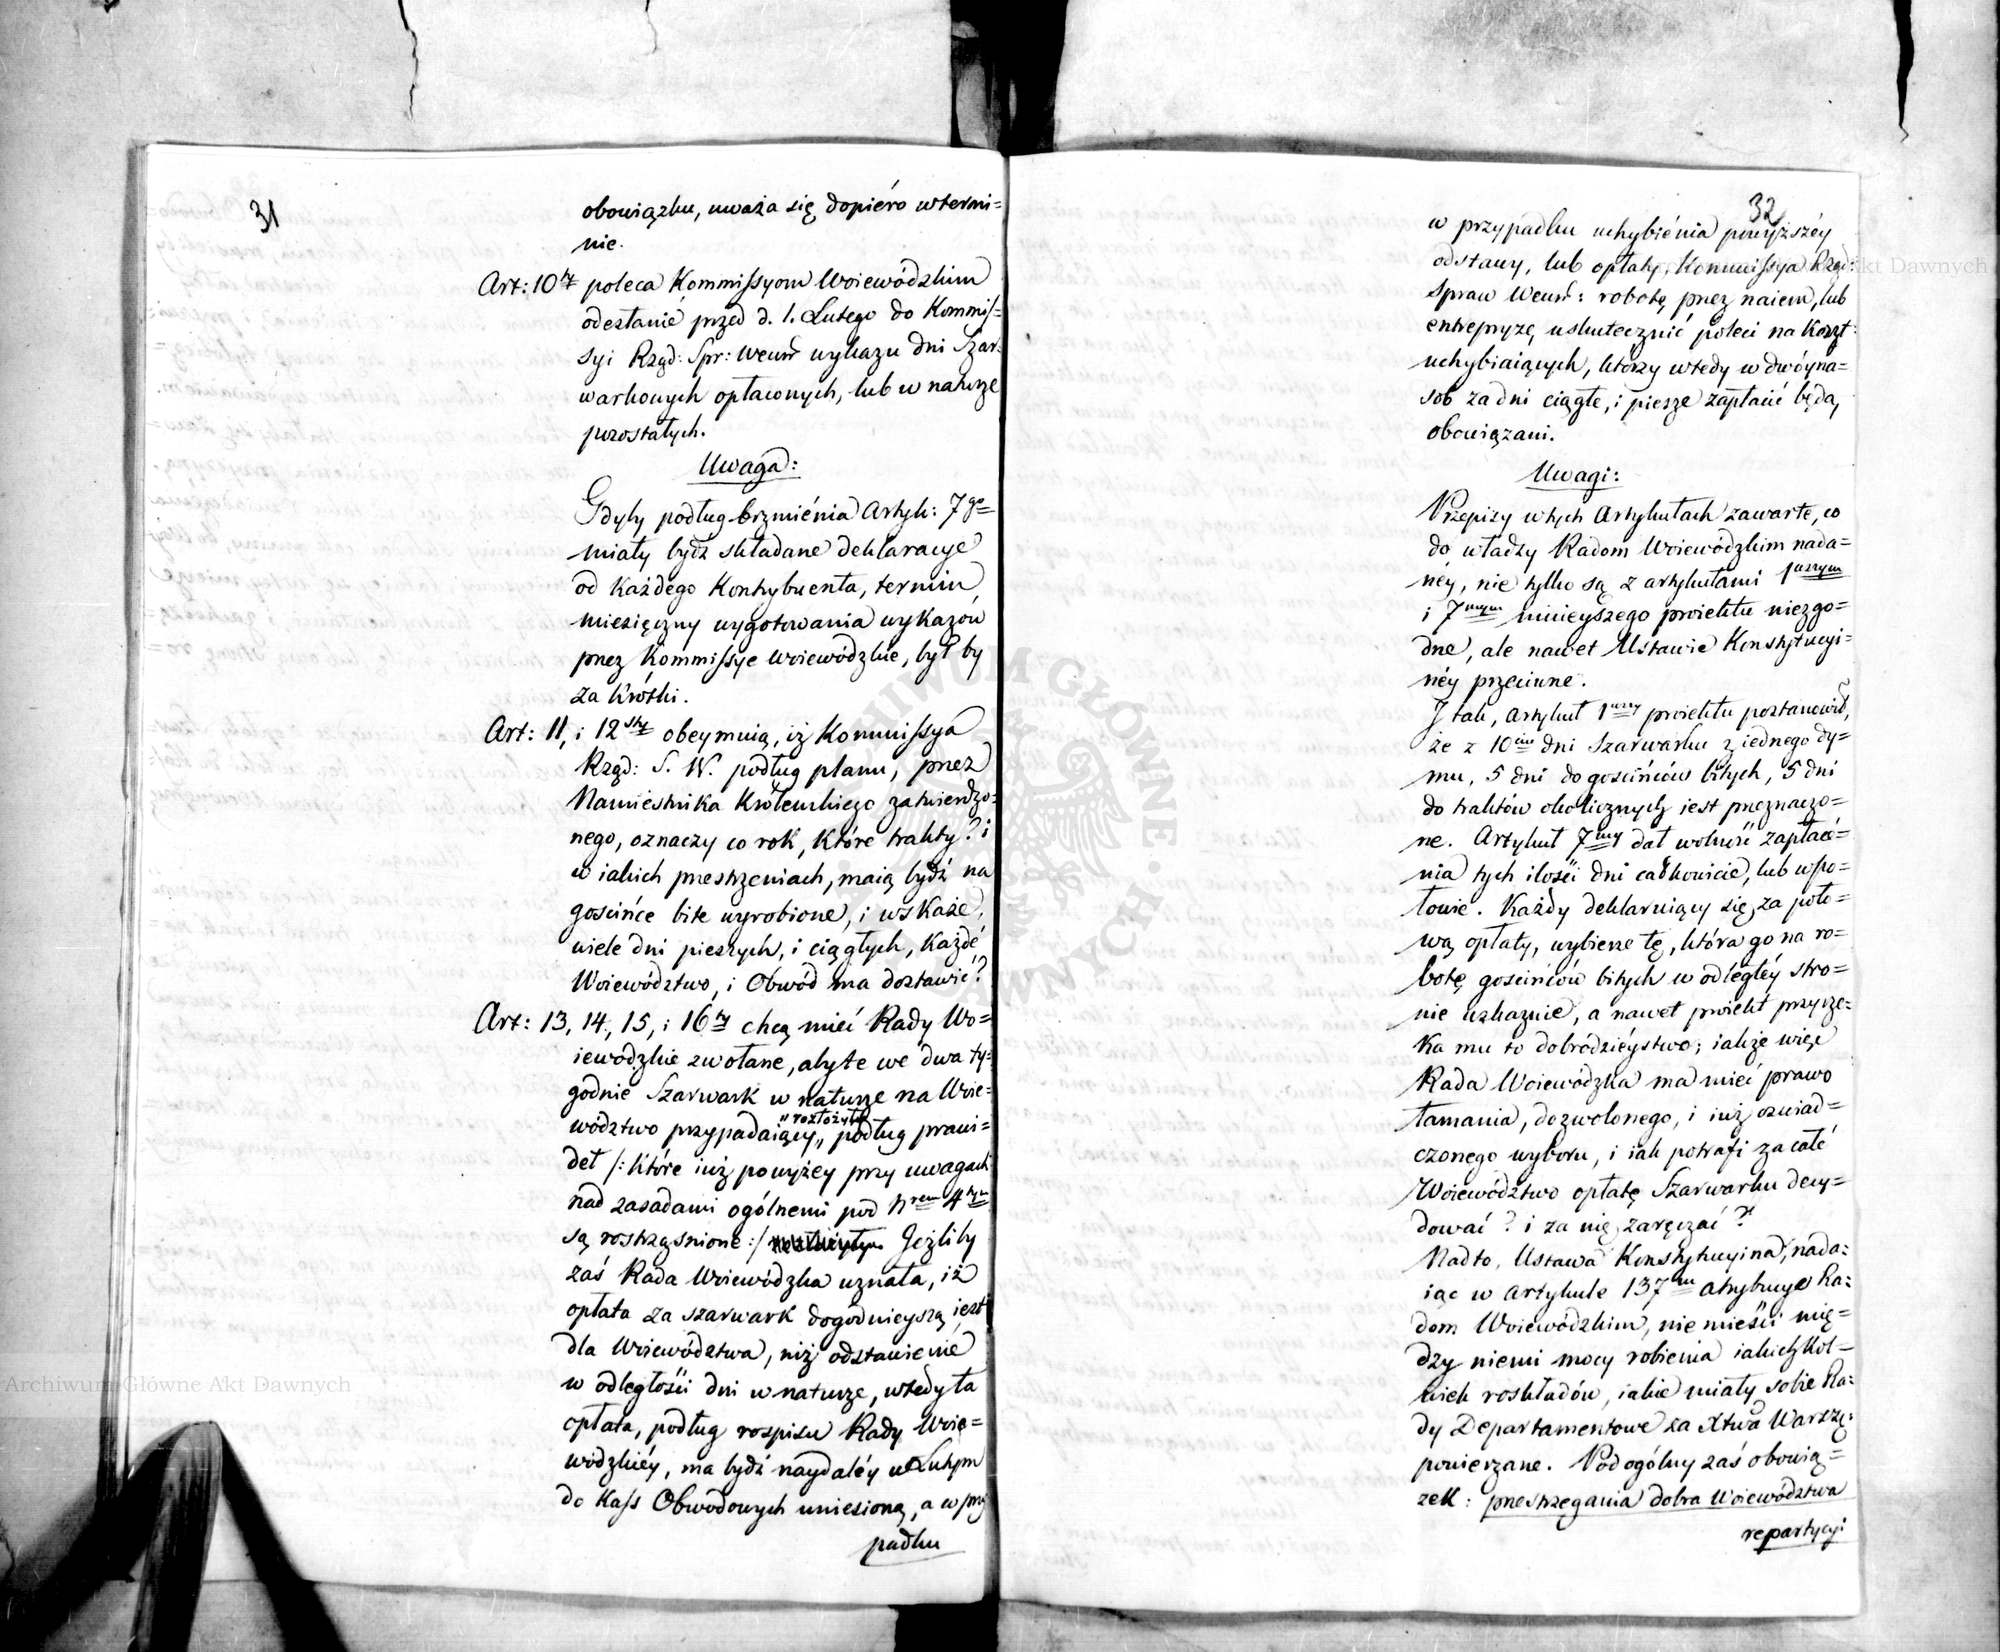 31
obowiązku, uważa się dopiéro w termi=
nie.
Art: 10ty poleca Kommissyom Woiewódzkim
odesłanié przed d. 1. Lutego do Kommis=
syi Rząd: Spr: Wewn: wykazu dni Szar=
warkowych opłaconych, lub w naturze
pozostałych.
Uwaga:
Gdyby podług brzmiénia Artyk: 7go
miały bydź składane deklaracye
od każdego Kontrybuenta, termin
miesięczny wygotowania wykazów
przez Kommissye Woiewódzkie, był by
za krótki.
Art: 11, i 12sty obeymuią, iż Kommissya
Rząd: S. W. podług planu, przez
Namiestnika Królewskiego zatwierdzo=
nego, oznaczy co rok, które trakty? i
w iakich przestrzeniach, maią bydź na
gościńce bite wyrobione, i wskaże,
wiele dni pieszych, i ciągłych, każdé
Woiewództwo, i Obwód ma dostawić?
Art: 13, 14, 15, i 16ty chcą mieć Rady Wo=
iewódzkie zwołane, aby te we dwa ty=
godnie Szarwark w naturze na Woie=
wództwo przypadaiący „ rozłożyły „ podług prawi=
deł /: które iuż powyżey przy uwagach
nad zasadami ogólnemi pod Nrem 4tym
są rostrząśnione :/ Jeżliby
zaś Rada Woiewódzka uznała, iż
opłata za szarwark dogodnieyszą iest
dla Woiewództwa, niż odstawienié
w odległości dni w naturze, wtedy ta
opłata, podług rospisu Rady Woie=
wódzkiéy, ma bydź naydaléy w Lutym
do Kass Obwodowych wniesioną, a w przy
padku
32
w przypadku uchybiénia powyższéy
odstawy, lub opłaty, Kommissya Rząd:
Spraw Wewn: robotę przez naiem, lub
entrepryzę uskutecznić poleci na koszt
uchybiaiących, którzy wtedy w dwóyna=
sob za dni ciągłe, i piesze zapłacić będą
obowiązani.
Uwagi:
Przepisy w tych Artykułach zawarte, co
do władzy Radom Woiewódzkim nada=
néy, nie tylko są z artykułami 1wszym
i 7mym ninieyszego proiektu niezgo=
dne, ale nawet Ustawie Konstytucyi=
néy przeciwne.
I tak, Artykuł 1wszy proiektu postanowił,
że z 10ciu dni Szarwarku z iednego dy=
mu, 5 dni do gościńców bitych, 5 dni
do traktów okolicznych iest przeznaczo=
ne. Artykuł 7my dał wolność zapłacé=
nia tych ilości dni całkowicie, lub w po=
łowie. Każdy deklaruiący się za poło=
wą opłaty, wybierze tę, która go na ro=
botę gościńców bitych w odległéy stro=
nie wskaznie, a nawet proiekt przyrze=
ka mu to dobrodzieystwo; iakże więc
Rada Woiewódzka ma mieć prawo
łamania, dozwolonego, i iuż oświad=
czonego wyboru, i iak potrafi za całé
Woiewództwo opłatę Szarwarku decy=
dować? i za nię zaręczać?
Nadto, Ustawa Konstytucyina, nada=
iąc w Artykule 137m atrybucye Ra=
dom Woiewódzkim, nie mieści mię=
dzy niemi mocy robienia iakichkol=
wiek roskładów, iakie miały sobie Ra=
dy Departamentowe za Xtwa Warszs:
powierzane. Pod ogólny zaś obowią=
zek: przestrzegania dobra Woiewództwa
repartycyi
Archiwum Główne Akt Dawnych